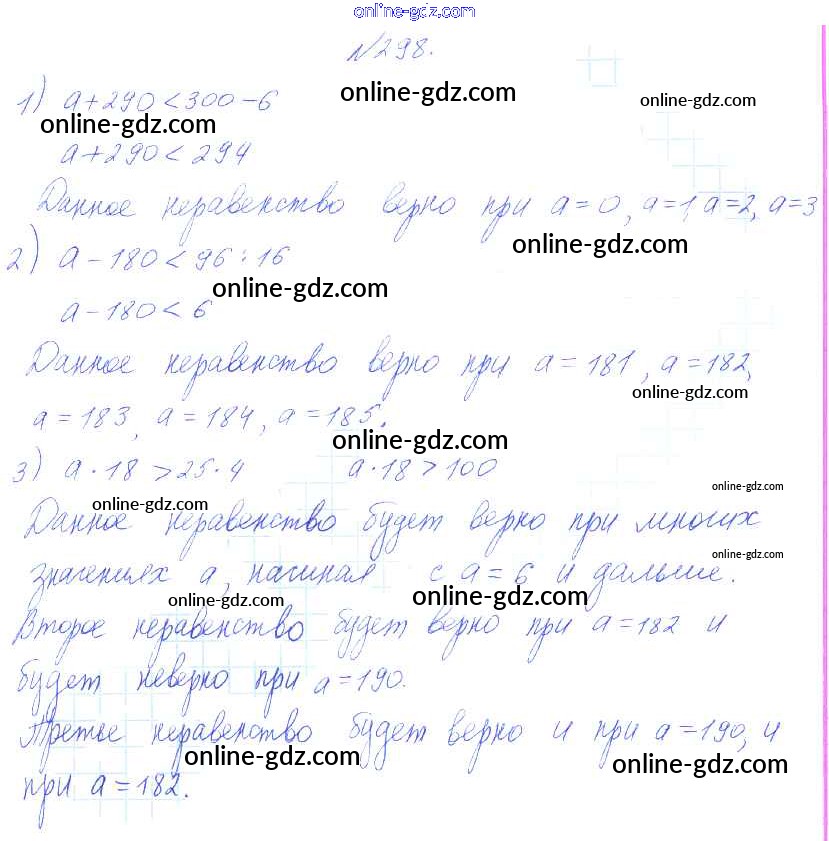 online-gdz.com
№298.
1) a+290<300-6
online-gdz.com
online-gdz.com
online-gdz.com
a+290<294
Данное неравенство верно при a=0, a=1, a=2, a=3
online-gdz.com
2) a-180<96:16
online-gdz.com
a-180<6
Данное неравенство верно при a=181, a=182,
online-gdz.com
a=183, a=184, a=185.
online-gdz.com
3) a·18>25·4 a·18>100
online-gdz.com
online-gdz.com
Данное неравенство будет верно при многих
online-gdz.com
значениях a, начиная с a=6 и дальше.
online-gdz.com
online-gdz.com
Второе неравенство будет верно при a=182 и
будет неверно при a=190.
Третье неравенство будет верно и при a=190, и
online-gdz.com
online-gdz.com
при a=182.